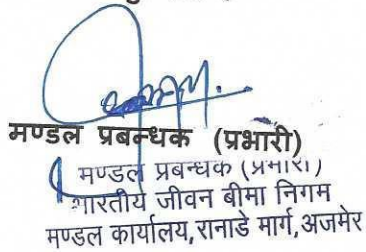 मण्डल प्रबन्धक (प्रभारी)
मण्डल प्रबन्धक (प्रभारी)
भारतीय जीवन बीमा निगम
मण्डल कार्यालय, रानाडे मार्ग, अजमेर